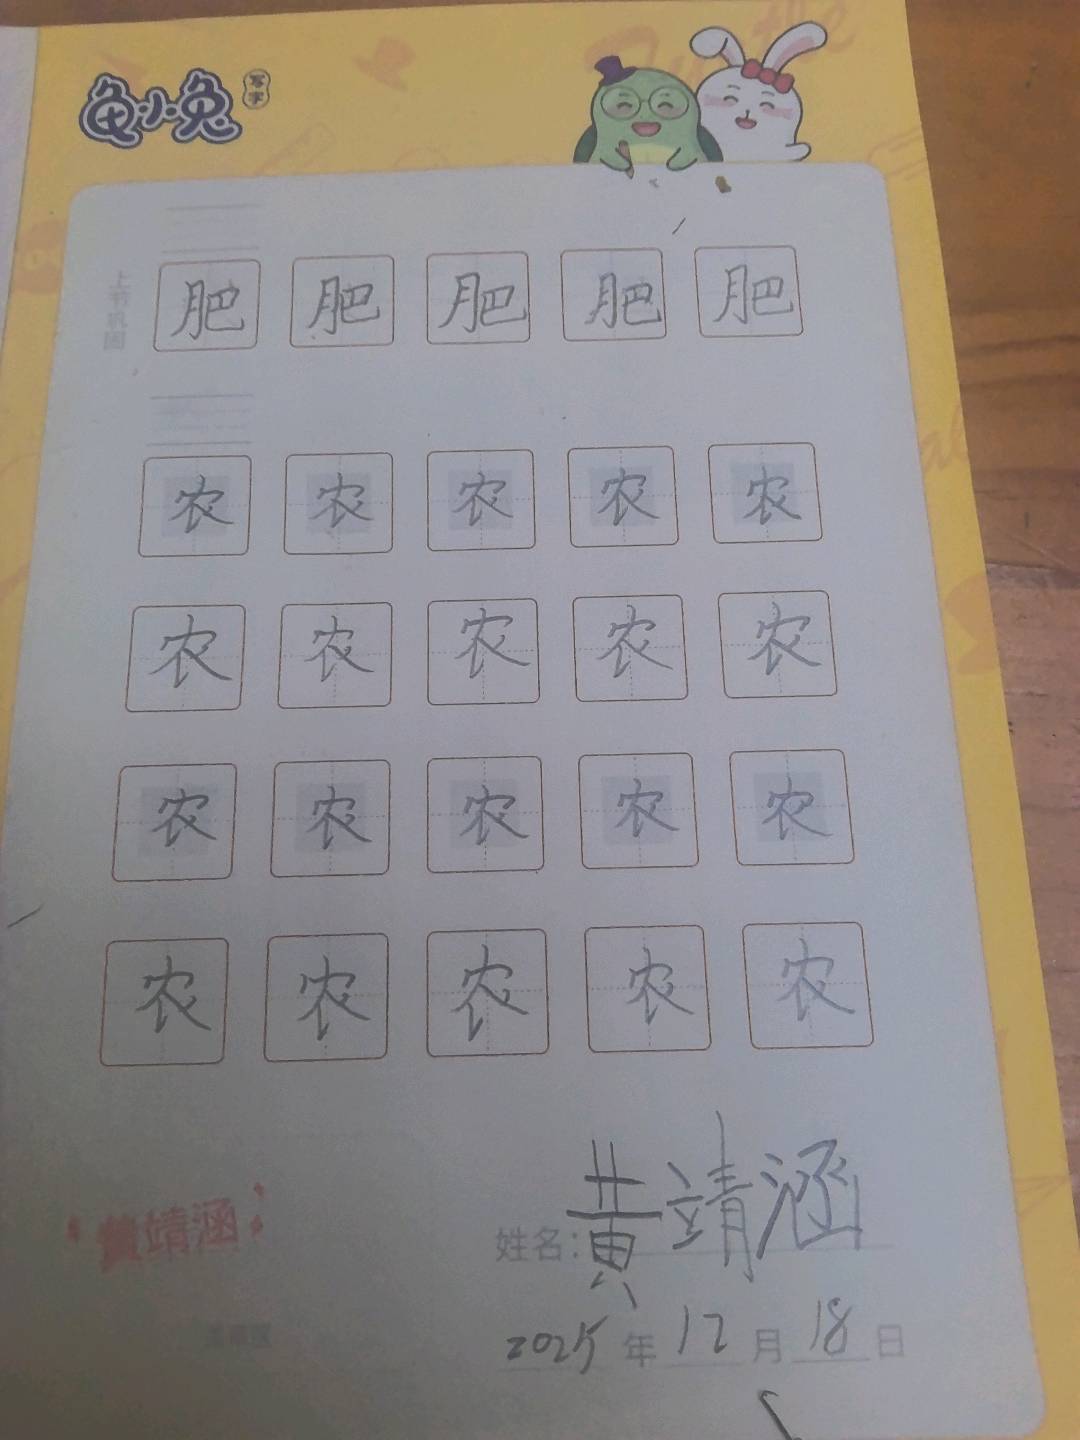 龟小兔 写字
上节巩固
肥 肥 肥 肥 肥
农 农 农 农 农
农 农 农 农 农
农 农 农 农 农
农 农 农 农 农
黄靖涵
姓名：黄靖涵
2025年12月18日